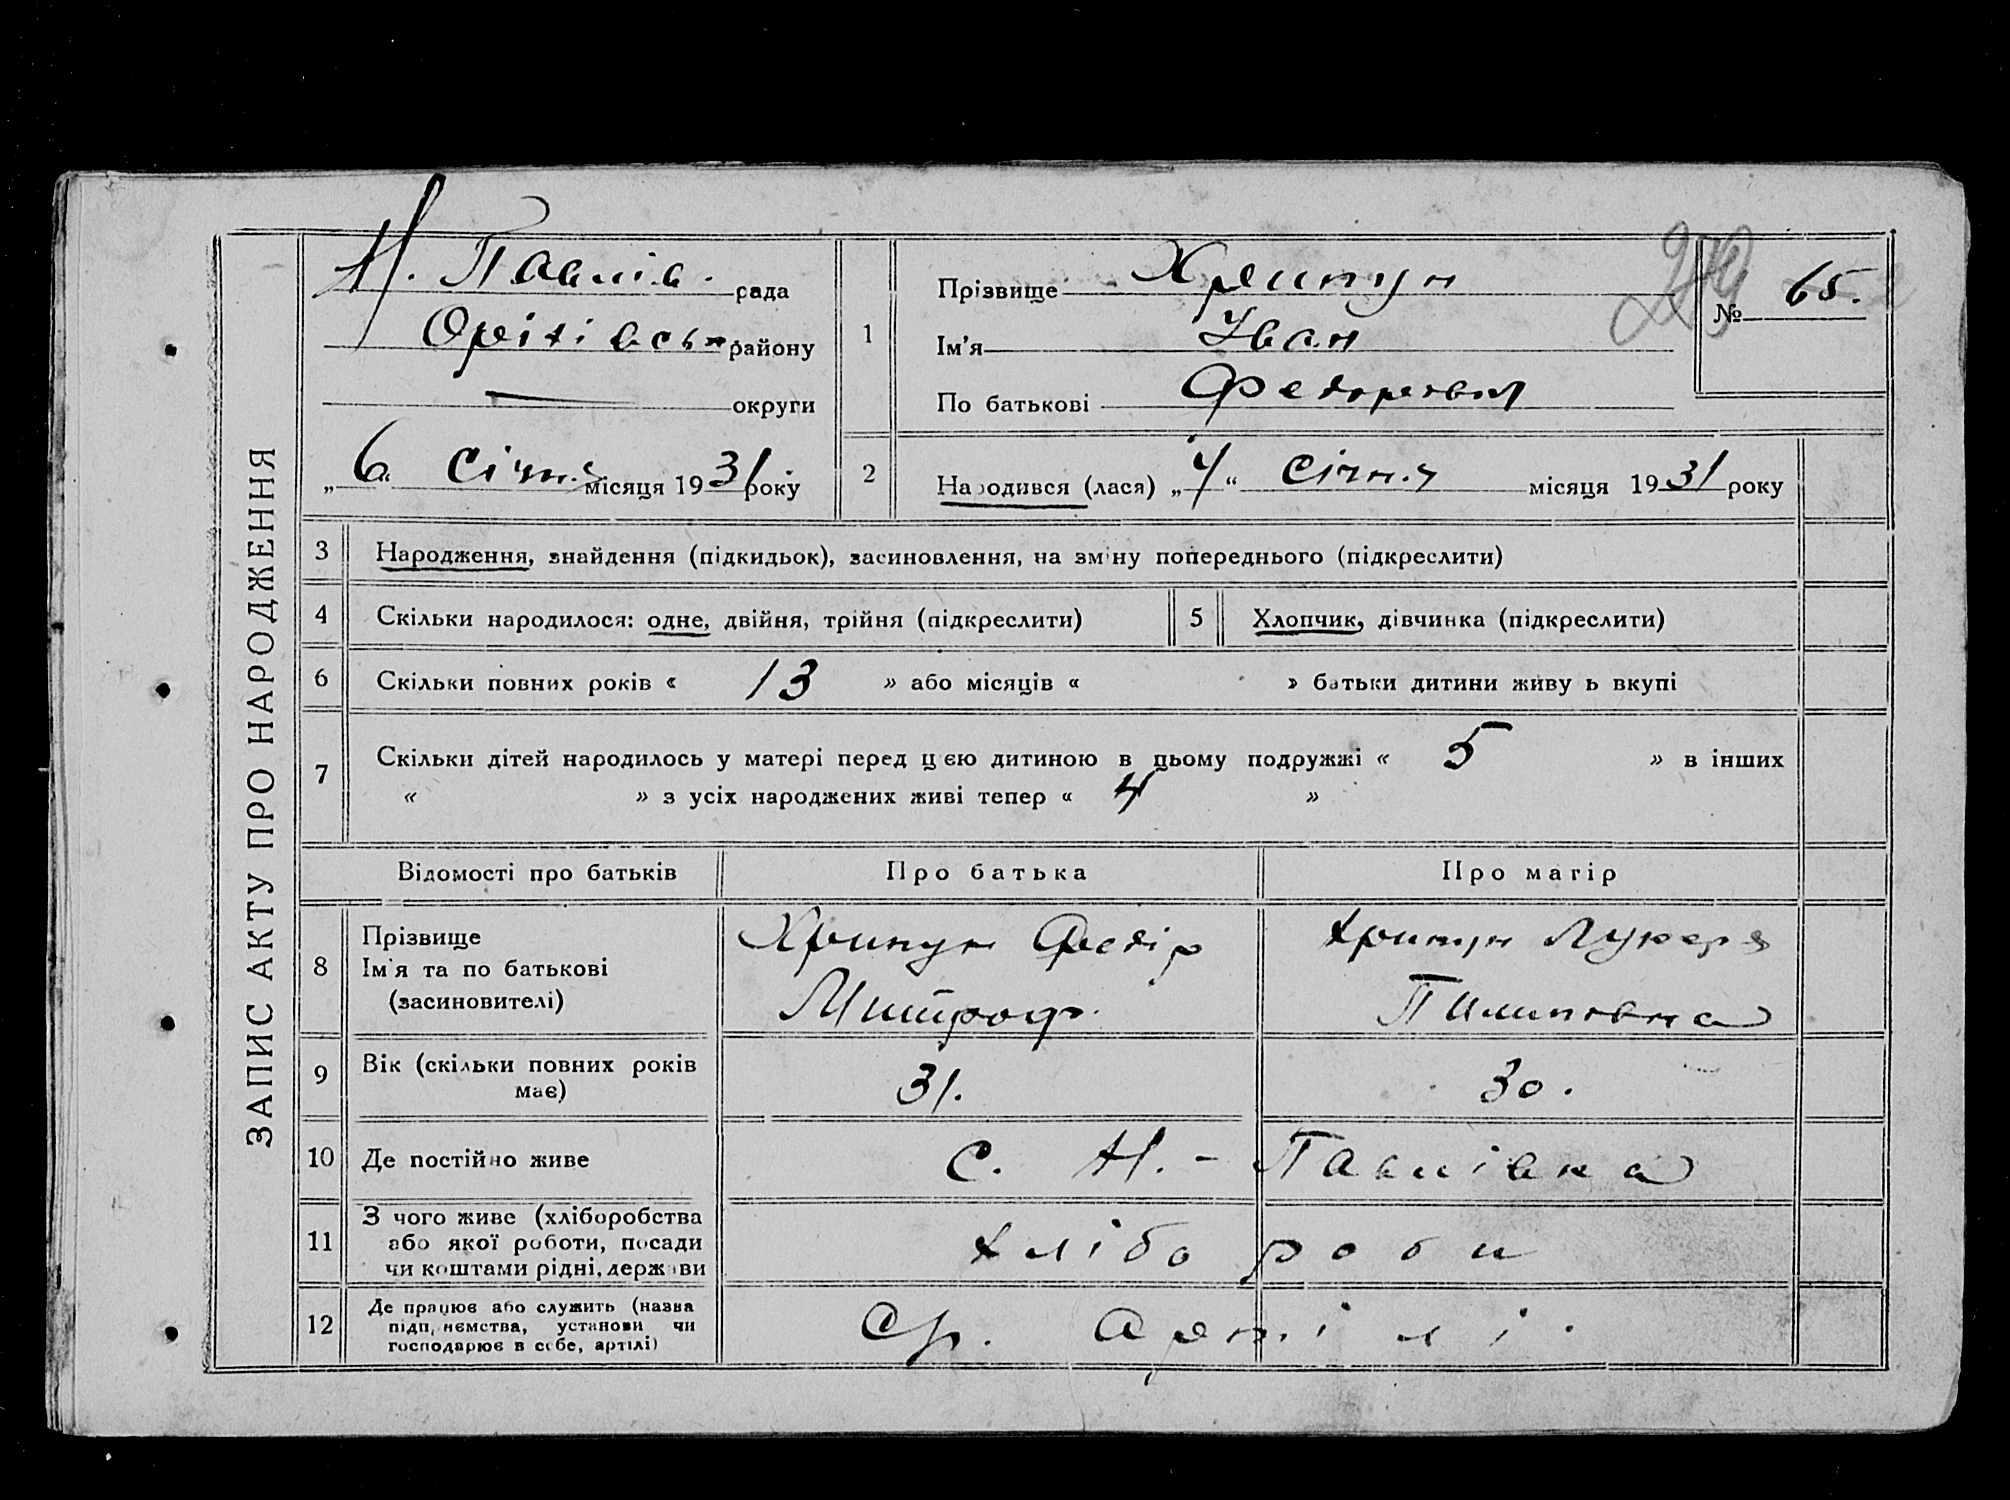 ЗАПИС АКТУ ПРО НАРОДЖЕННЯ
Н. Павлів. рада
Оріхівськ. району
— округи
„6“ січня місяця 1931 року
1
Прізвище Хрипун
Ім'я Іван
По батькові Федорович
№ 65.
279
2
Народився (лася) „4“ січня місяця 1931 року
3 Народження, знайдення (підкидьок), засиновлення, на зміну попереднього (підкреслити)
4 Скільки народилося: одне, двійня, трійня (підкреслити)
5 Хлопчик, дівчинка (підкреслити)
6 Скільки повних років « 13 » або місяців « » батьки дитини живуть вкупі
7 Скільки дітей народилось у матері перед цією дитиною в цьому подружжі « 5 » в інших
« » з усіх народжених живі тепер « 4 »
Відомості про батьків Про батька Про матір
8 Прізвище
Ім'я та по батькові
(засиновителі)
Хрипун Федір
Митроф.
Хрипун Лукеря
Пилиповна
9 Вік (скільки повних років
має)
31. 30.
10 Де постійно живе
с. Н.-Павлівка
11 З чого живе (хліборобства
або якої роботи, посади
чи коштами рідні, держави
хлібороби
12 Де працює або служить (назва
підприємства, установи чи
господарює в себе, артілі)
Ср. артілі.